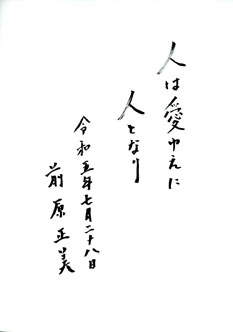 人は愛ゆえに
人となり
令和五年七月二十八日
前原正美